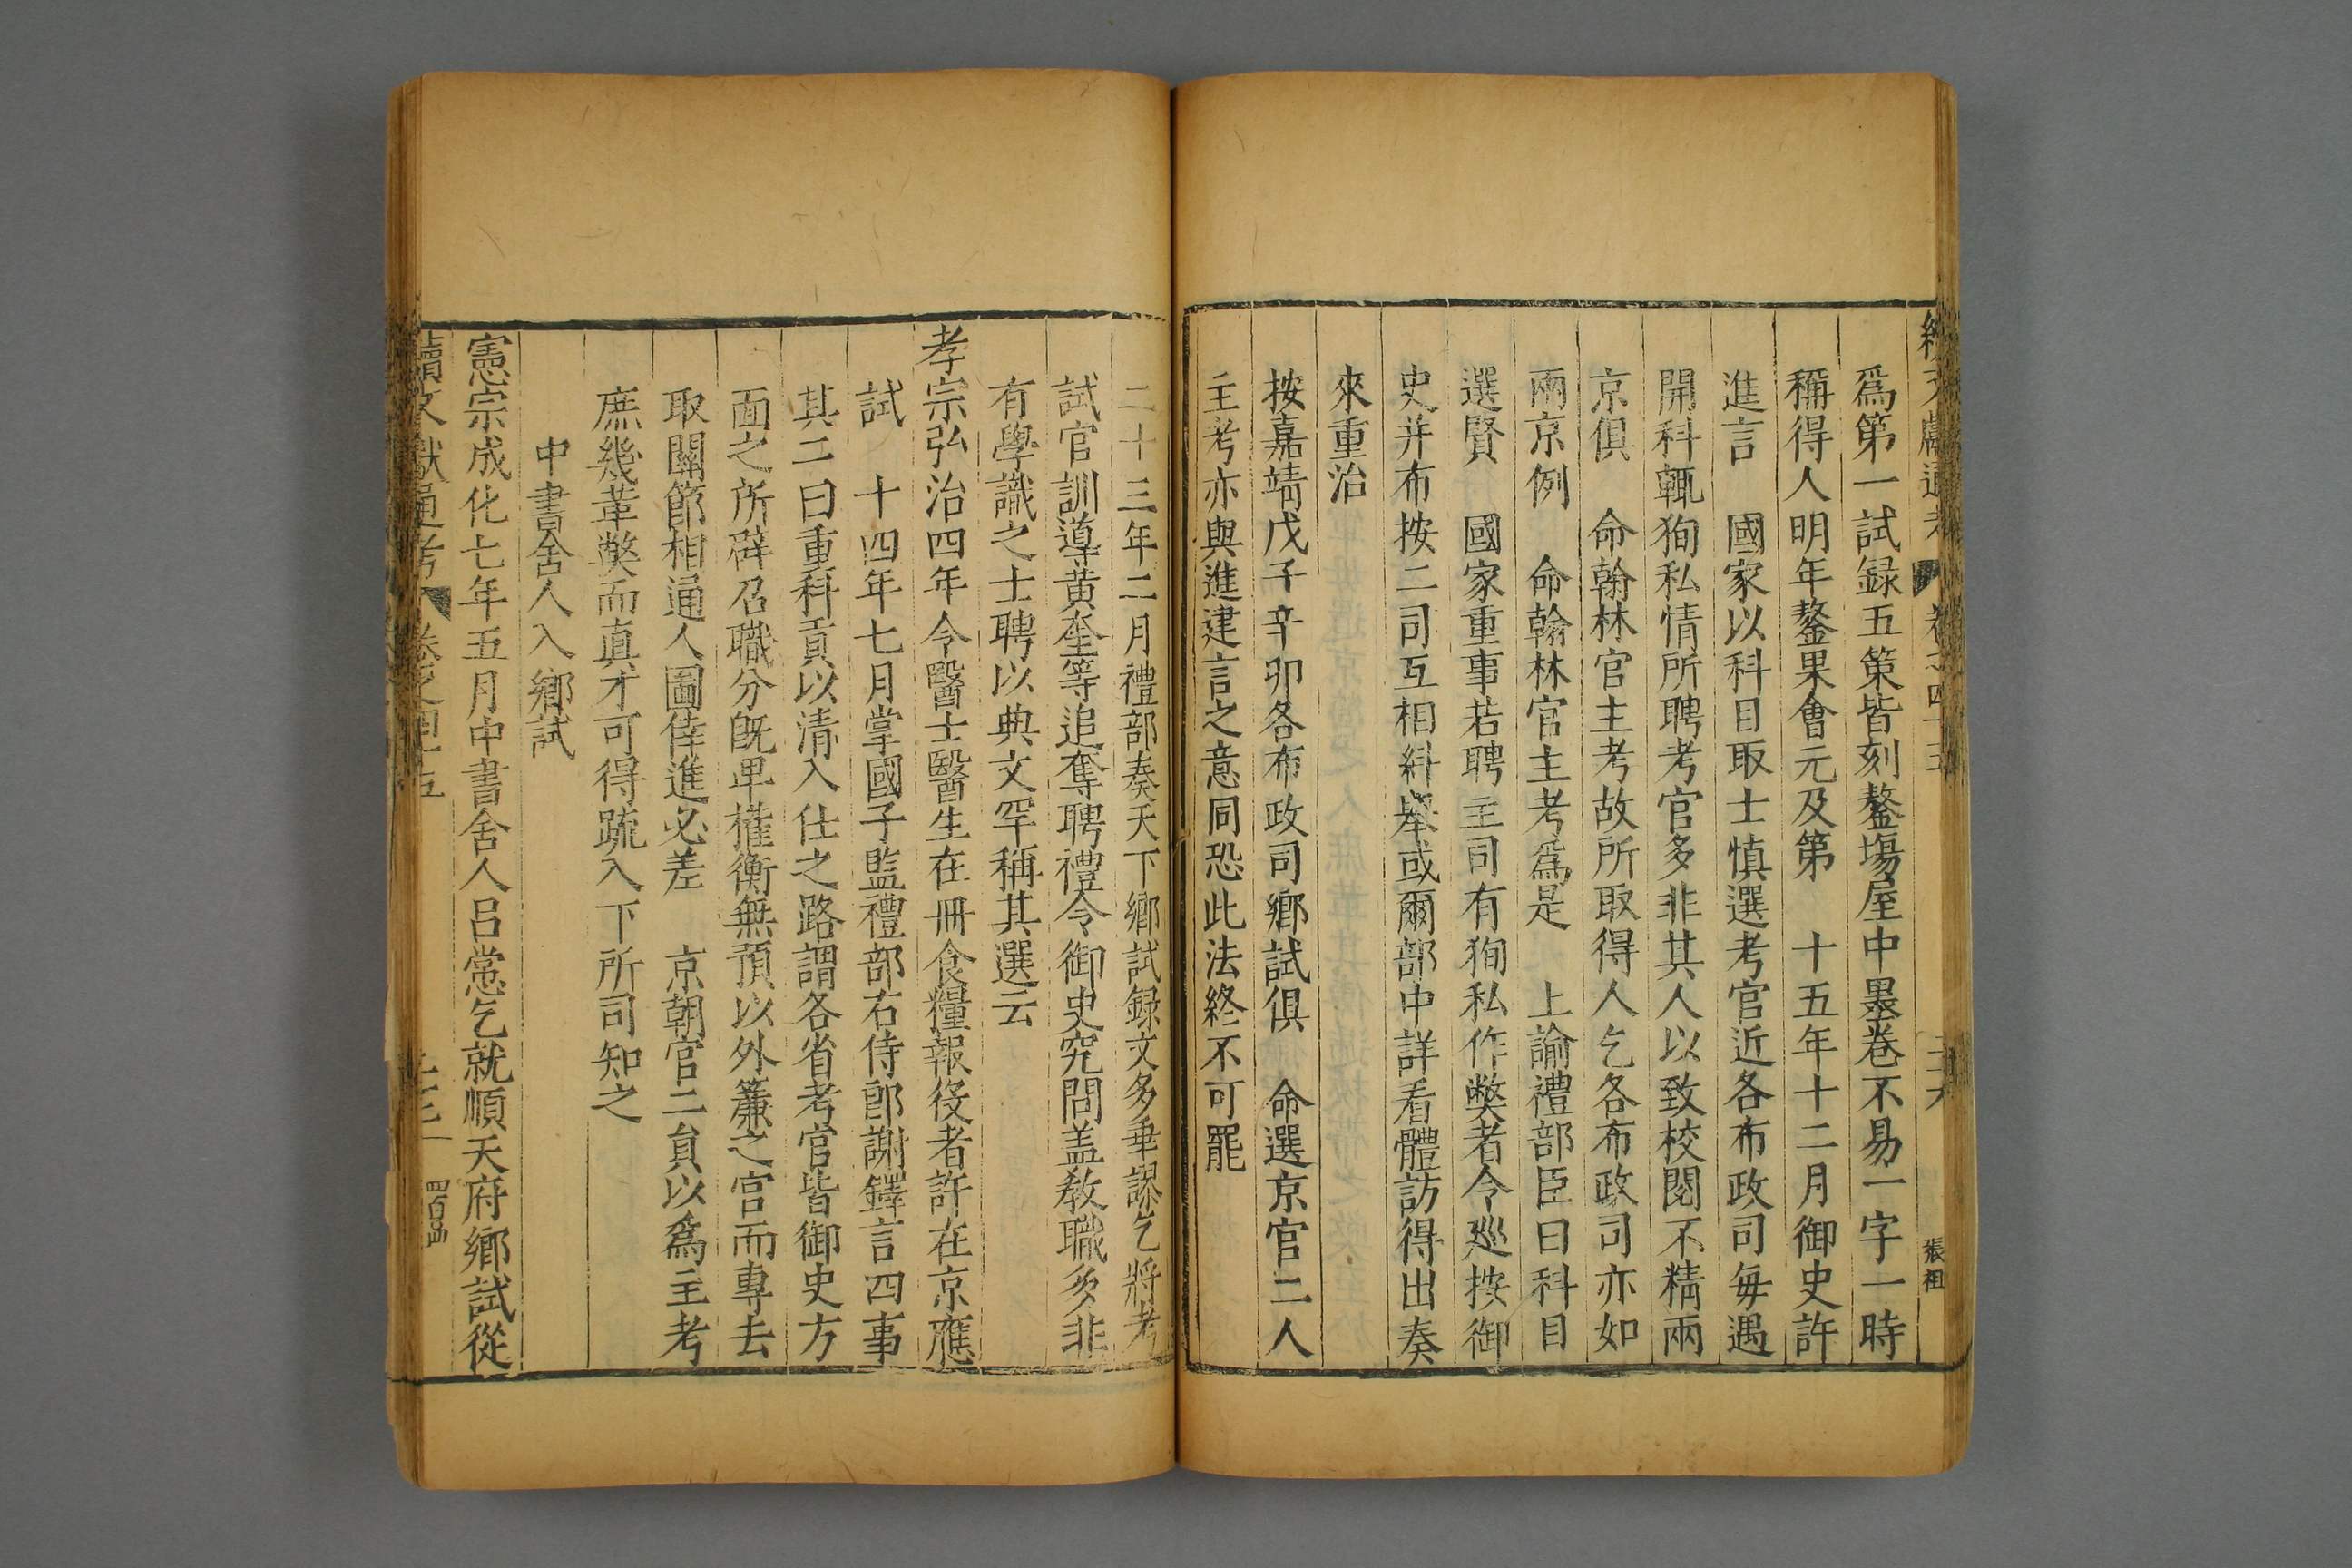 爲第一試録五策皆刻鏊塲屋中墨卷不易一字一時
稱得人明年鏊果會元及第 十五年十二月御史許
進言 國家以科目取士慎選考官近各布政司毎遇
開科輒狥私情所聘考官多非其人以致校閱不精兩
京俱 命翰林官主考故所取得人乞各布政司亦如
兩京例 命翰林官主考爲是 上諭禮部臣曰科目
選賢 國家重事若聘主司有狥私作弊者令廵按御
史并布按二司互相糾舉或爾部中詳看體訪得出奏
來重治
按嘉靖戊子辛卯各布政司鄉試俱 命選京官二人
主考亦與進建言之意同恐此法終不可罷
張祖
二十三年二月禮部奏天下鄉試録文多乖謬乞將考
試官訓導黄奎等追奪聘禮令御史究問盖教職多非
有學識之士聘以典文罕稱其選云
孝宗弘治四年令醫士醫生在冊食糧報役者許在京應
試 十四年七月掌國子監禮部右侍郎謝鐸言四事
其二曰重科貢以清入仕之路謂各省考官皆御史方
面之所辟召職分旣卑權衡無預以外簾之官而專去
取關節相通人圖倖進必差 京朝官二員以爲主考
庶幾革弊而真才可得疏入下所司知之
中書舍人入鄉試
憲宗成化七年五月中書舍人吕㦂乞就順天府鄉試從
續文獻通考 卷之四十五